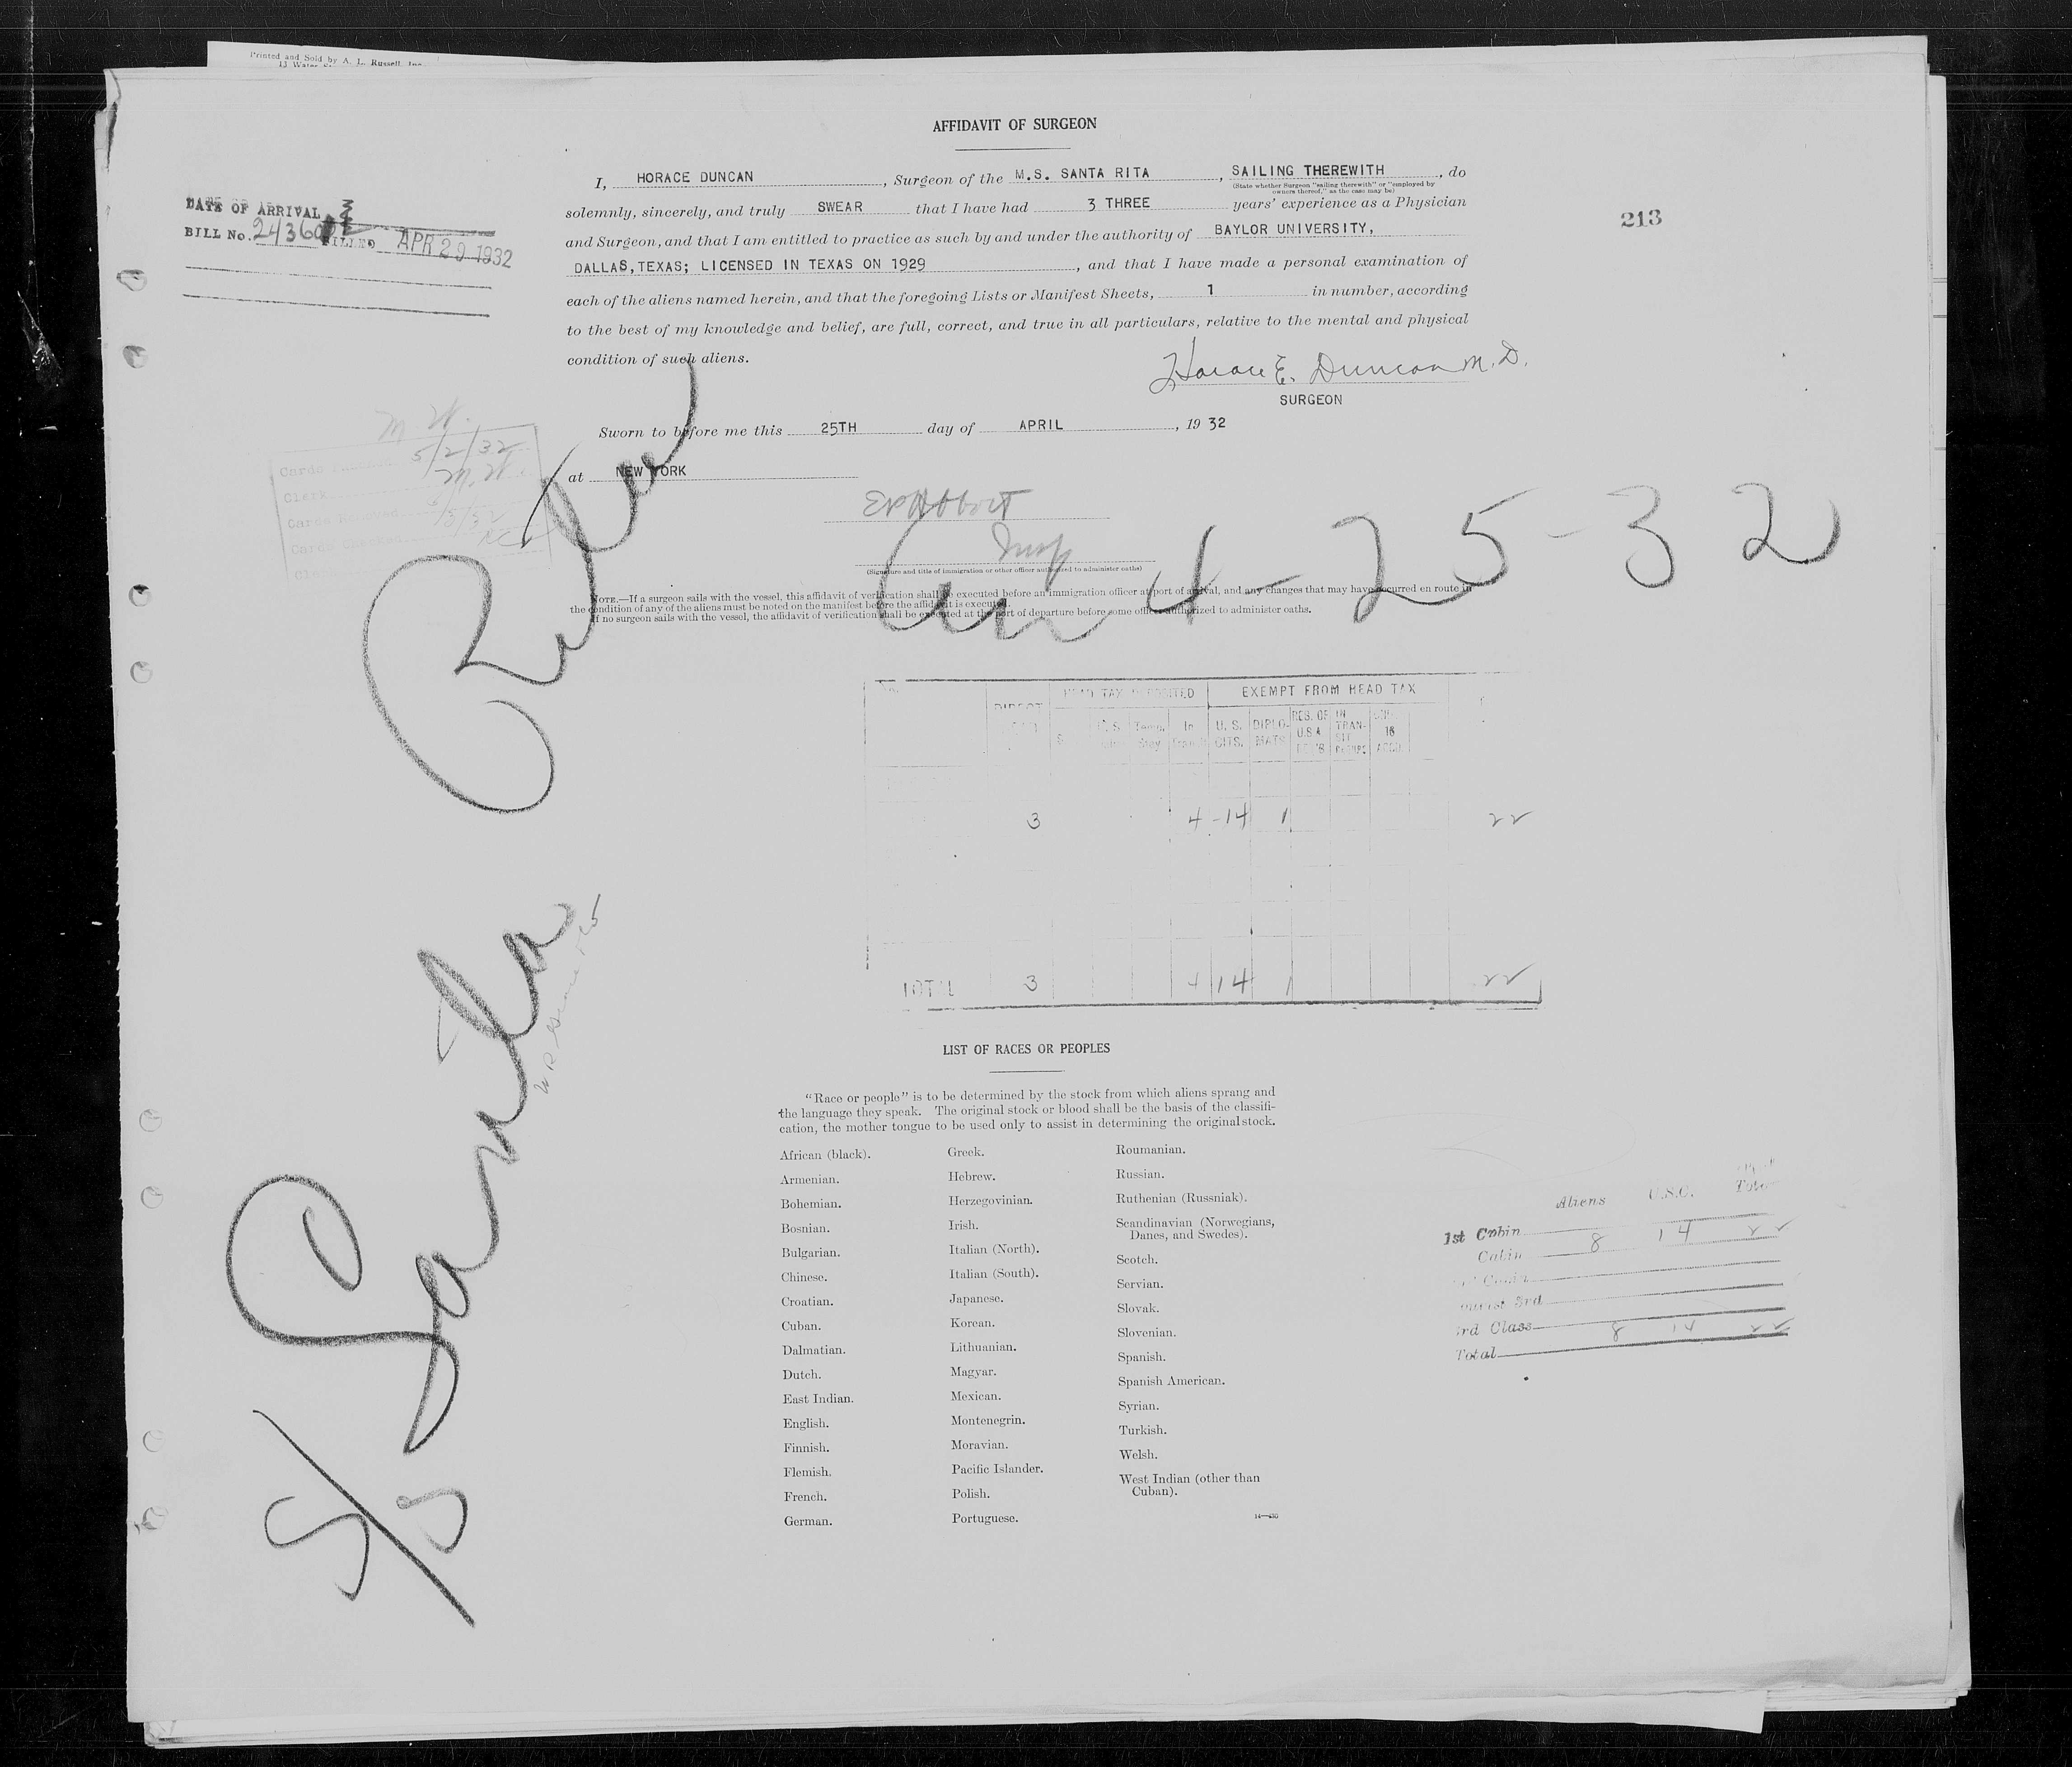 Printed and Sold by A. L. Russell, Inc.
AFFIDAVIT OF SURGEON
I, HORACE DUNCAN, Surgeon of the M.S. SANTA RITA, SAILING THEREWITH, do
(State whether Surgeon "sailing therewith" or "employed by
owners thereof," as the case may be)
solemnly, sincerely, and truly SWEAR that I have had 3 THREE years' experience as a Physician
and Surgeon, and that I am entitled to practice as such by and under the authority of BAYLOR UNIVERSITY,
DALLAS, TEXAS; LICENSED IN TEXAS ON 1929, and that I have made a personal examination of
each of the aliens named herein, and that the foregoing Lists or Manifest Sheets, 1 in number, according
to the best of my knowledge and belief, are full, correct, and true in all particulars, relative to the mental and physical
condition of such aliens.
Horace E. Duncan M.D.
SURGEON
Sworn to before me this 25TH day of APRIL, 19 32
at NEW YORK
Insp
(Signature and title of immigration or other officer authorized to administer oaths)
NOTE.—If a surgeon sails with the vessel, this affidavit of verification shall be executed before an immigration officer at port of arrival, and any changes that may have occurred en route in
the condition of any of the aliens must be noted on the manifest before the affidavit is executed.
If no surgeon sails with the vessel, the affidavit of verification shall be executed at the port of departure before some officer authorized to administer oaths.
DATE OF ARRIVAL
BILL No. 24360 FILLED APR 29 1932
213
M.W.
5/2/32
Clerk M.W.
Cards Checked
Arr 4-25-32
S/S Santa Rita
HEAD TAX DEPOSITED EXEMPT FROM HEAD TAX
DIRECT
In Transit U. S. CITS. DIPLO- MATS RES. OF U.S.A. IN TRAN- SIT
3 4 -14 1 22
TOTAL 3 4 14 1 22
LIST OF RACES OR PEOPLES
"Race or people" is to be determined by the stock from which aliens sprang and
the language they speak. The original stock or blood shall be the basis of the classifi-
cation, the mother tongue to be used only to assist in determining the original stock.
African (black).
Armenian.
Bohemian.
Bosnian.
Bulgarian.
Chinese.
Croatian.
Cuban.
Dalmatian.
Dutch.
East Indian.
English.
Finnish.
Flemish.
French.
German.
Greek.
Hebrew.
Herzegovinian.
Irish.
Italian (North).
Italian (South).
Japanese.
Korean.
Lithuanian.
Magyar.
Mexican.
Montenegrin.
Moravian.
Pacific Islander.
Polish.
Portuguese.
Roumanian.
Russian.
Ruthenian (Russniak).
Scandinavian (Norwegians,
Danes, and Swedes).
Scotch.
Servian.
Slovak.
Slovenian.
Spanish.
Spanish American.
Syrian.
Turkish.
Welsh.
West Indian (other than
Cuban).
Aliens U.S.C. Total
1st Cabin 8 14 22
Cabin
Tourist 3rd
3rd Class
Total 8 14 22